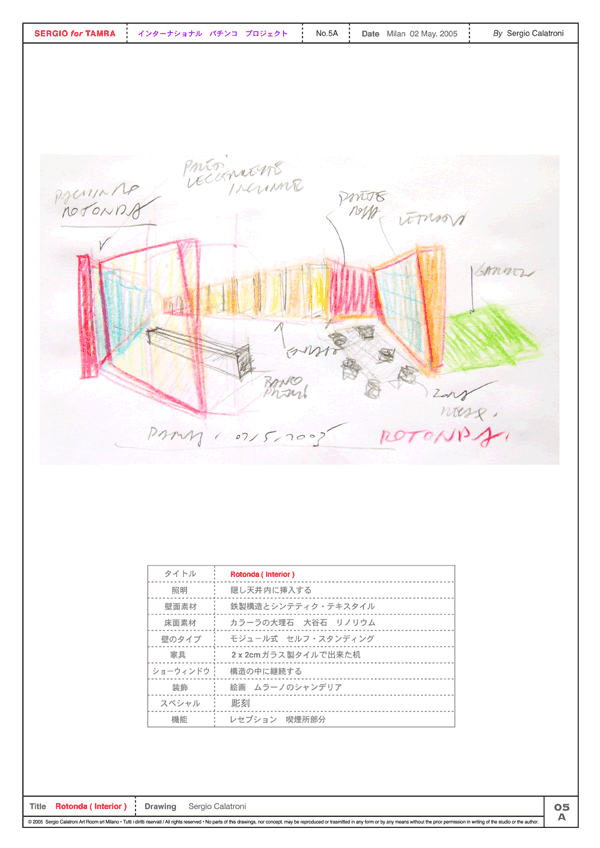 SERGIO for TAMRA インターナショナル パチンコ プロジェクト No.5A Date Milan 02 May. 2005 By Sergio Calatroni
PARETI
LEGGERMENTE
INCLINATE
ROTONDA
PARETE
ROSSA
VETRINA
GARDEN
BANCO
ZONA
ROTONDA.
タイトル Rotonda ( Interior )
照明 隠し天井内に挿入する
壁面素材 鉄製構造とシンテティク・テキスタイル
床面素材 カラーラの大理石 大谷石 リノリウム
壁のタイプ モジュール式 セルフ・スタンディング
家具 2 x 2cmガラス製タイルで出来た机
ショーウィンドウ 構造の中に継続する
装飾 絵画 ムラーノのシャンデリア
スペシャル 彫刻
機能 レセプション 喫煙所部分
Title Rotonda ( Interior ) Drawing Sergio Calatroni 05
A
© 2005 Sergio Calatroni Art Room srl Milano • Tutti i diritti riservati / All rights reserved • No parts of this drawings, nor concept, may be reproduced or trasmitted in any form or by any means without the prior permission in writing of the studio or the author.